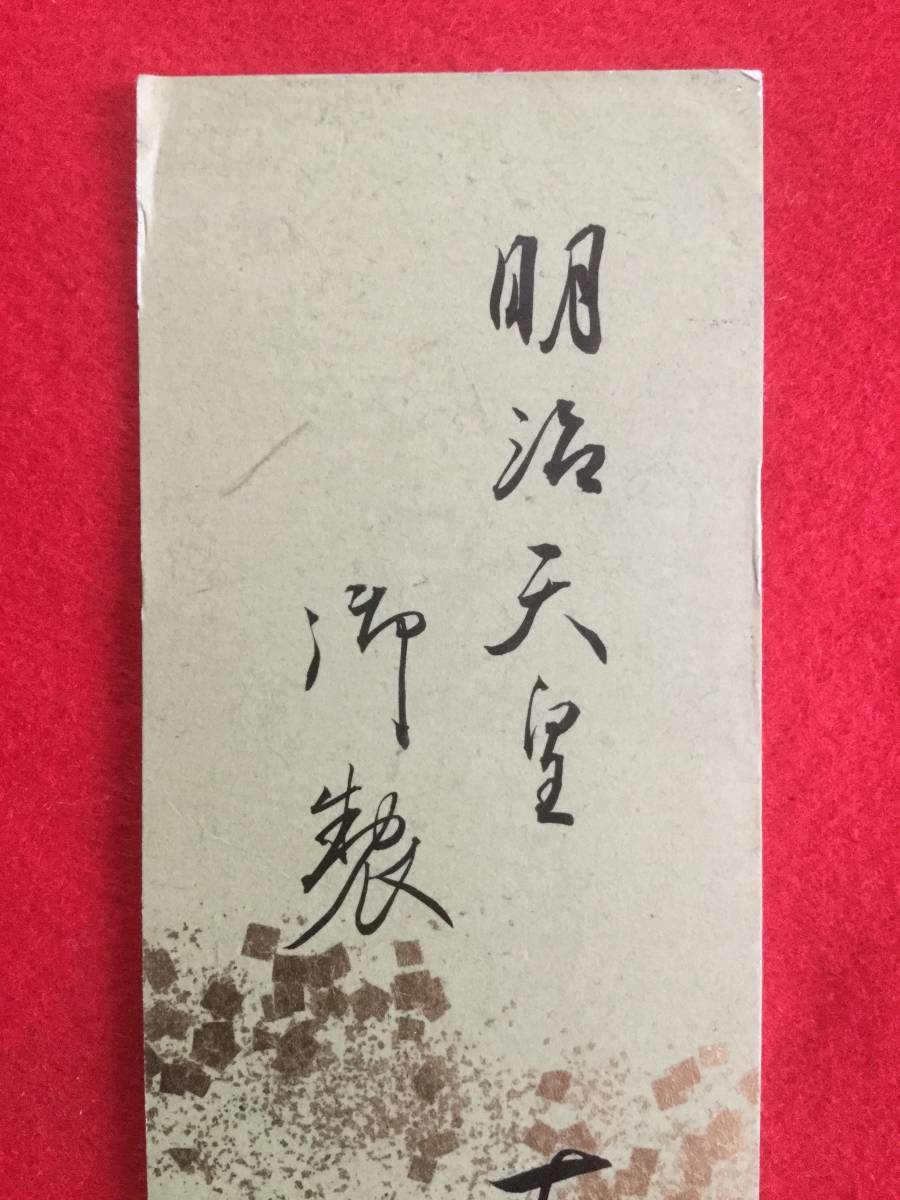 明治天皇
御製